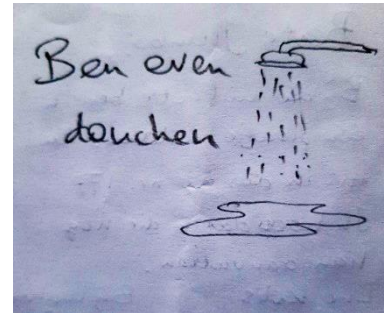 Ben even
douchen